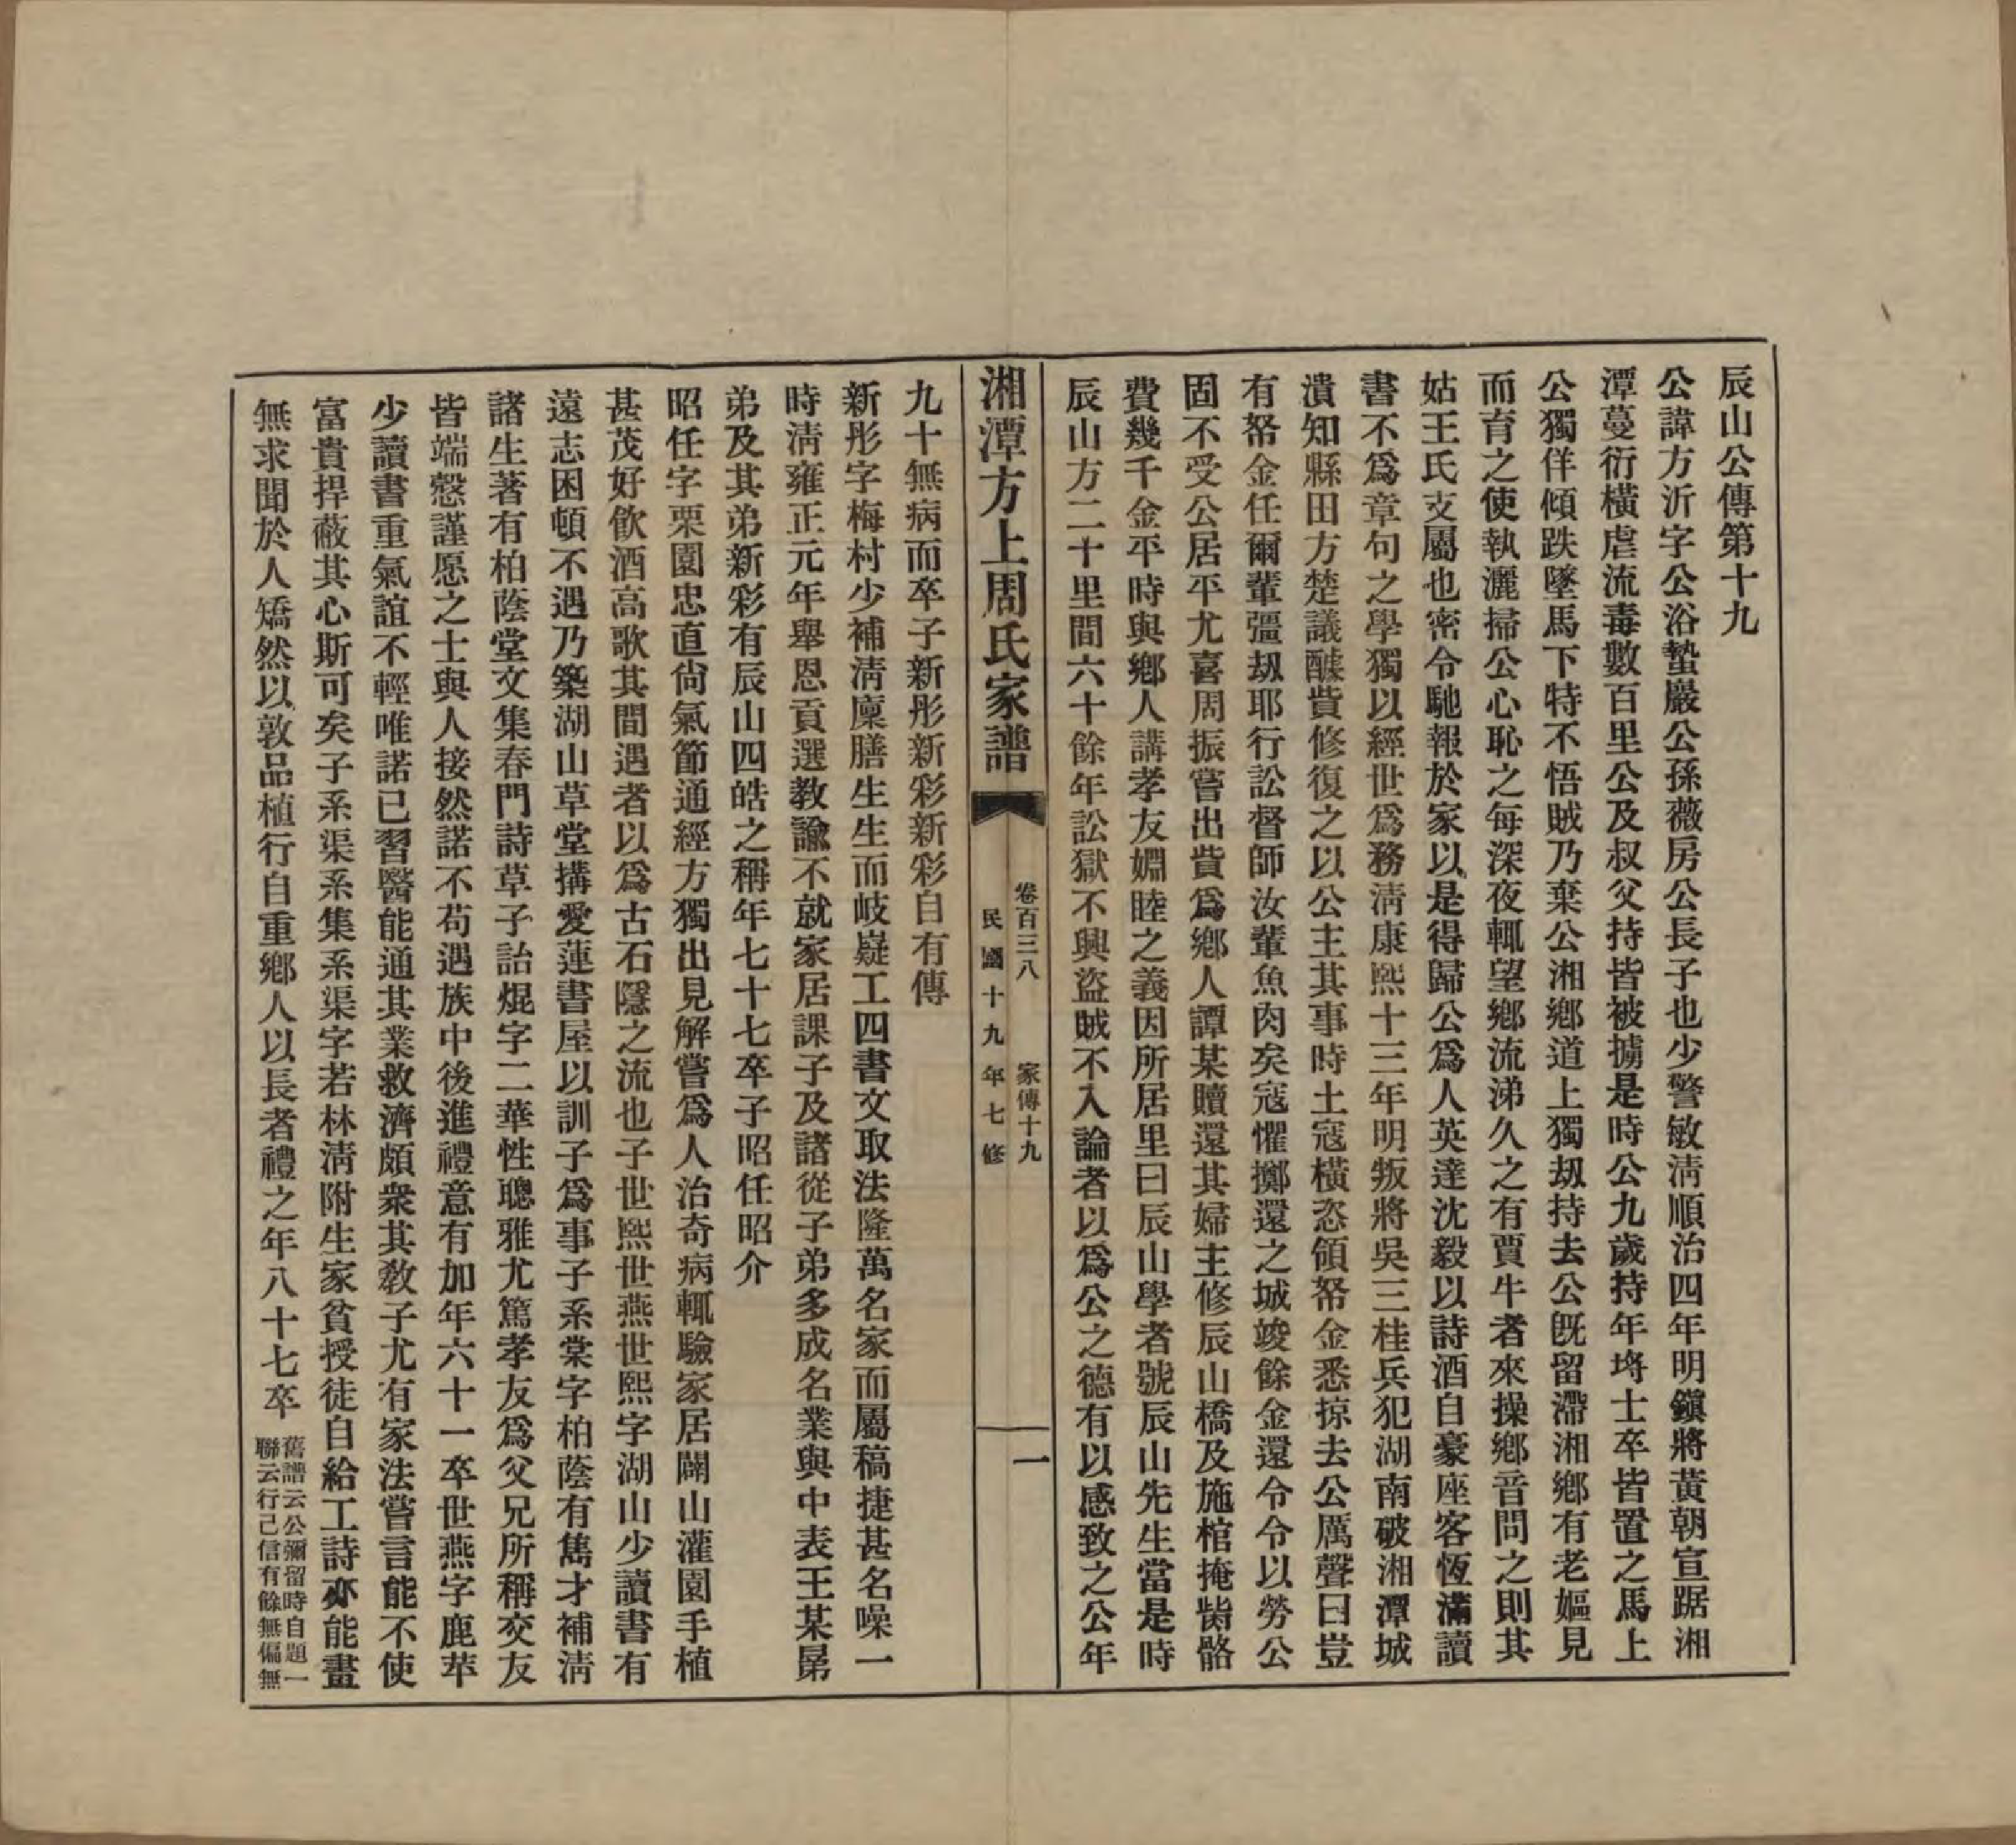 辰山公傳第十九
公諱方沂字公浴蟄巖公孫薇房公長子也少警敏淸順治四年明鎭將黃朝宣踞湘
潭蔓衍橫虐流毒數百里公及叔父持皆被擄是時公九歲持年埒士卒皆置之馬上
公獨佯傾跌墜馬下特不悟賊乃棄公湘鄕道上獨刼持去公旣留滯湘鄕有老嫗見
而育之使執灑掃公心恥之每深夜輒望鄕流涕久之有賈牛者來操鄕音問之則其
姑王氏支屬也密令馳報於家以是得歸公爲人英達沈毅以詩酒自豪座客恆滿讀
書不爲章句之學獨以經世爲務淸康熙十三年明叛將吳三桂兵犯湖南破湘潭城
潰知縣田方楚議醵貲修復之以公主其事時土寇橫恣領帑金悉掠去公厲聲曰豈
有帑金任爾輩彊刼耶行訟督師汝輩魚肉矣寇懼擲還之城竣餘金還令令以勞公
固不受公居平尤喜周振嘗出貲爲鄕人譚某贖還其婦主修辰山橋及施棺掩胔骼
費幾千金平時與鄕人講孝友婣睦之義因所居里曰辰山學者號辰山先生當是時
辰山方二十里間六十餘年訟獄不興盜賊不入論者以爲公之德有以感致之公年
湘潭方上周氏家譜
卷百三八 家傳十九
民國十九年七修
一
九十無病而卒子新彤新彩新彩自有傳
新彤字梅村少補淸廩膳生生而岐嶷工四書文取法隆萬名家而屬稿捷甚名噪一
時淸雍正元年舉恩貢選敎諭不就家居課子及諸從子弟多成名業與中表王某晜
弟及其弟新彩有辰山四皓之稱年七十七卒子昭任昭介
昭任字栗園忠直尙氣節通經方獨出見解嘗爲人治奇病輒驗家居闢山灌園手植
甚茂好飮酒高歌其間遇者以爲古石隱之流也子世熙世燕世熙字湖山少讀書有
遠志困頓不遇乃築湖山草堂搆愛蓮書屋以訓子爲事子系棠字柏蔭有雋才補淸
諸生著有柏蔭堂文集春門詩草子詒焜字二華性聰雅尤篤孝友爲父兄所稱交友
皆端慤謹愿之士與人接然諾不苟遇族中後進禮意有加年六十一卒世燕字鹿苹
少讀書重氣誼不輕唯諾已習醫能通其業救濟頗衆其敎子尤有家法嘗言能不使
富貴捍蔽其心斯可矣子系渠系集系渠字若林淸附生家貧授徒自給工詩亦能畫
無求聞於人矯然以敦品植行自重鄕人以長者禮之年八十七卒舊譜云公彌留時自題一
聯云行己信有餘無偏無